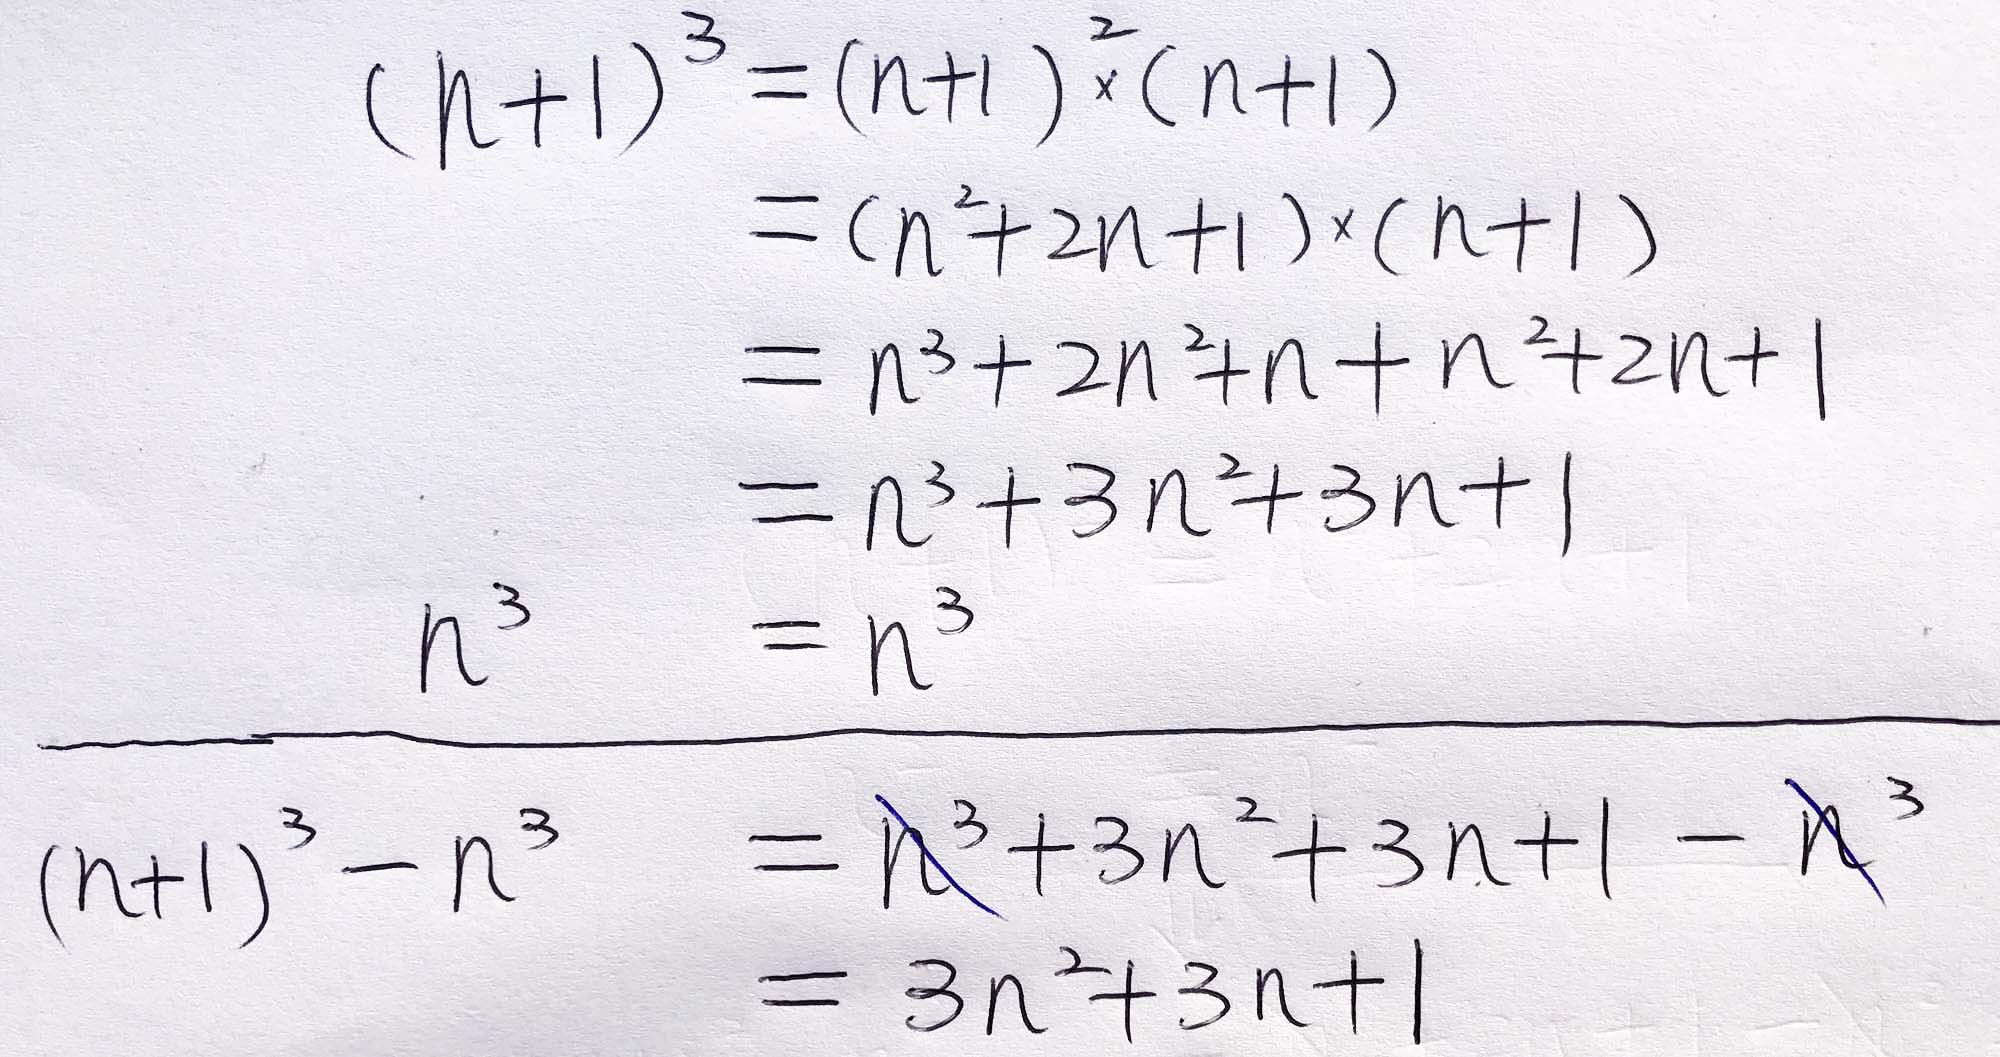 (n+1)³ = (n+1)² × (n+1)
= (n²+2n+1) × (n+1)
= n³+2n²+n+n²+2n+1
= n³+3n²+3n+1
n³ = n³
(n+1)³ − n³ = n³+3n²+3n+1 − n³
= 3n²+3n+1